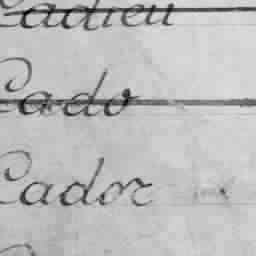 Cadieu
Cado
Cador